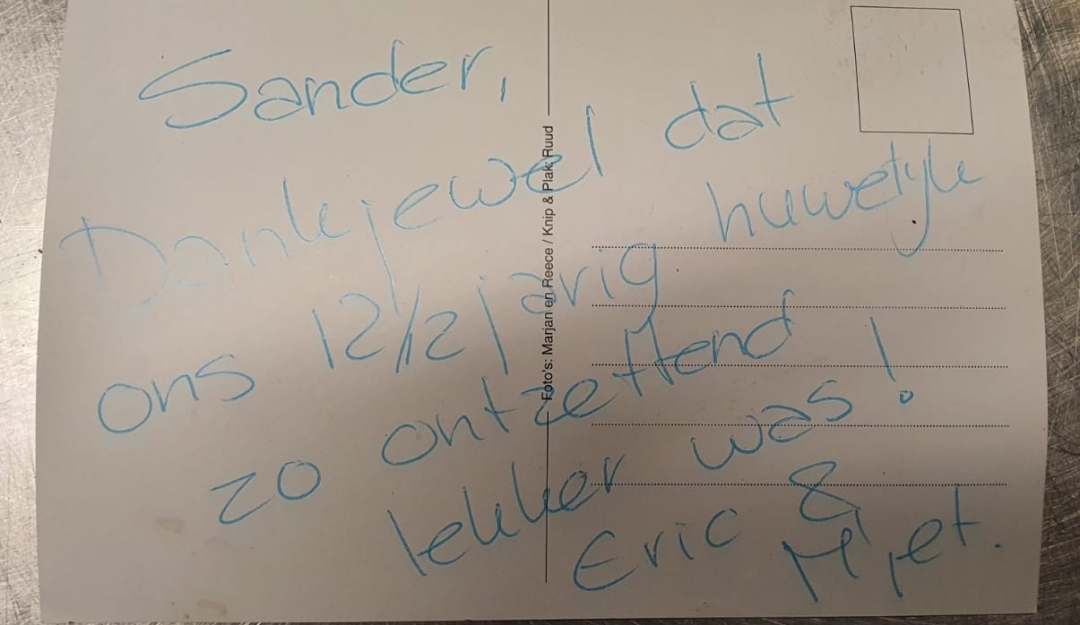 Sander,
Dankjewel dat
ons 12 1/2 jarig huwelijk
zo ontzettend
lekker was!
Eric &
Foto's: Marjan en Reece / Knip & Plak: Ruud